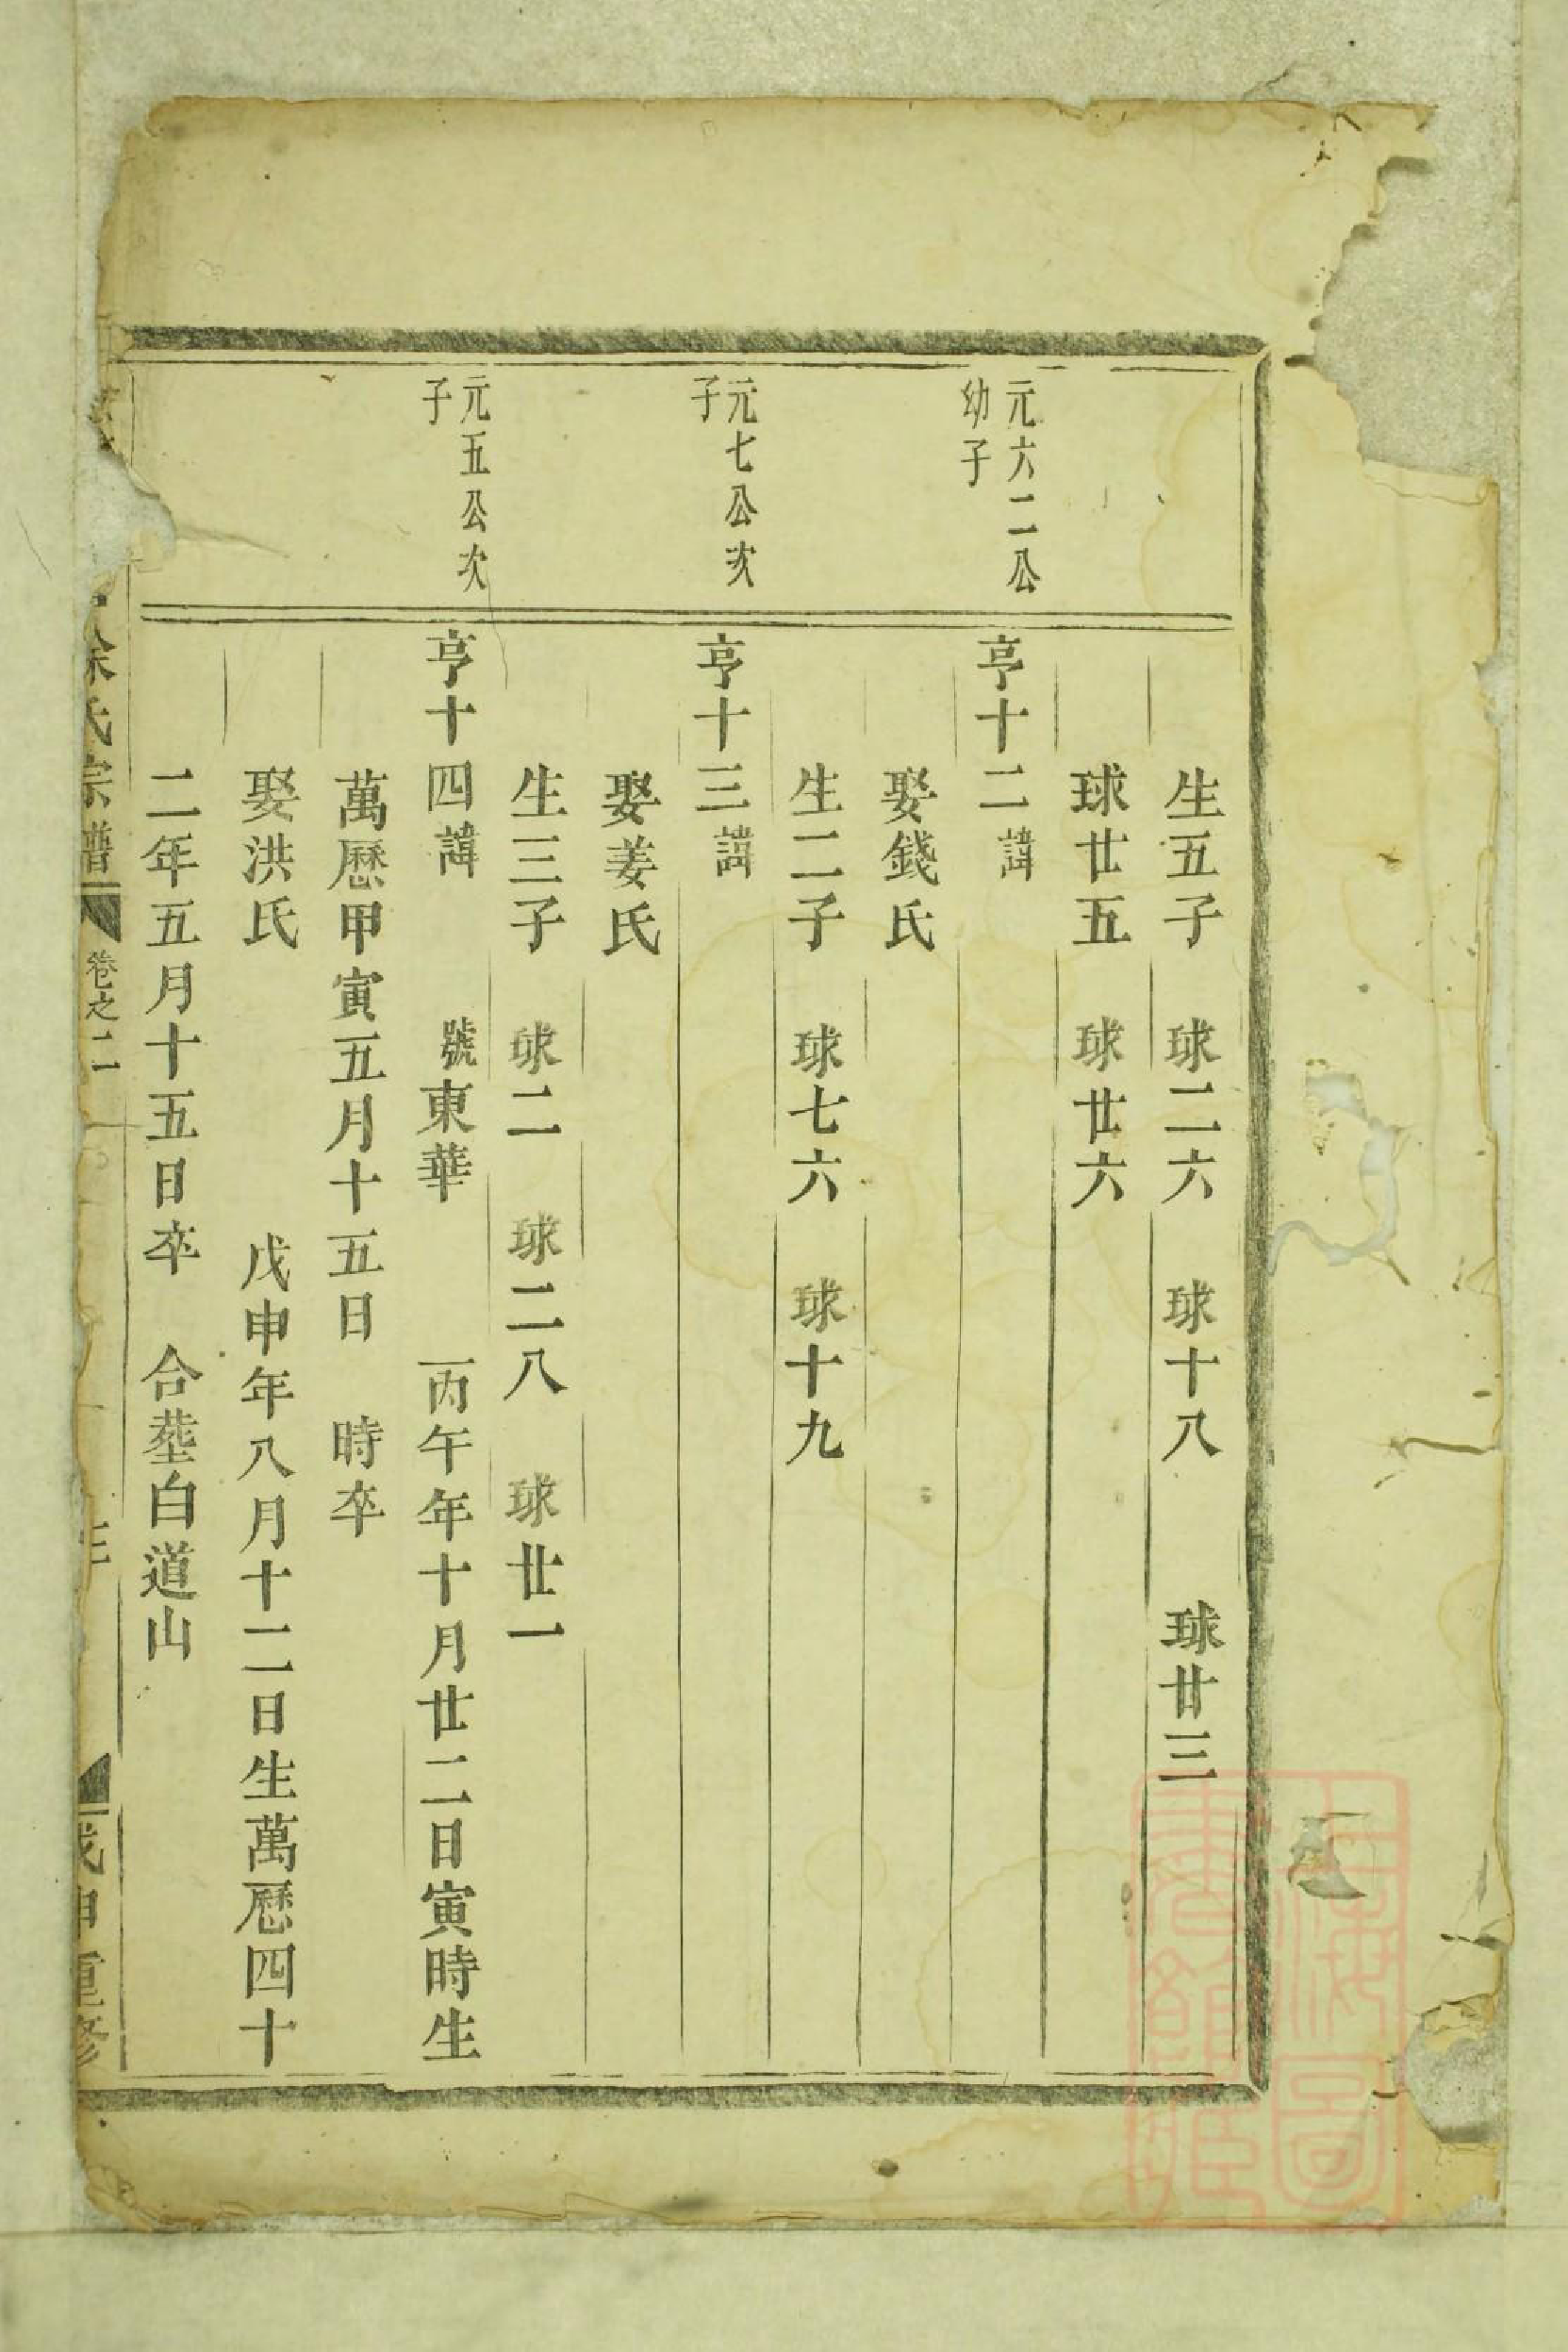 生五子 球二六 球十八 球廿三
球廿五 球廿六
元六二公
幼子
亨十二諱
娶錢氏
生二子 球七六 球十九
元七公次
子
亨十三諱
娶姜氏
生三子 球二 球二八 球廿一
元五公次
子
亨十四諱 號東華 丙午年十月廿二日寅時生
萬厯甲寅五月十五日 時卒
娶洪氏 戊申年八月十二日生萬厯四十
二年五月十五日卒 合塟白道山
徐氏宗譜 卷之二 戊申重修
上海圖書館藏